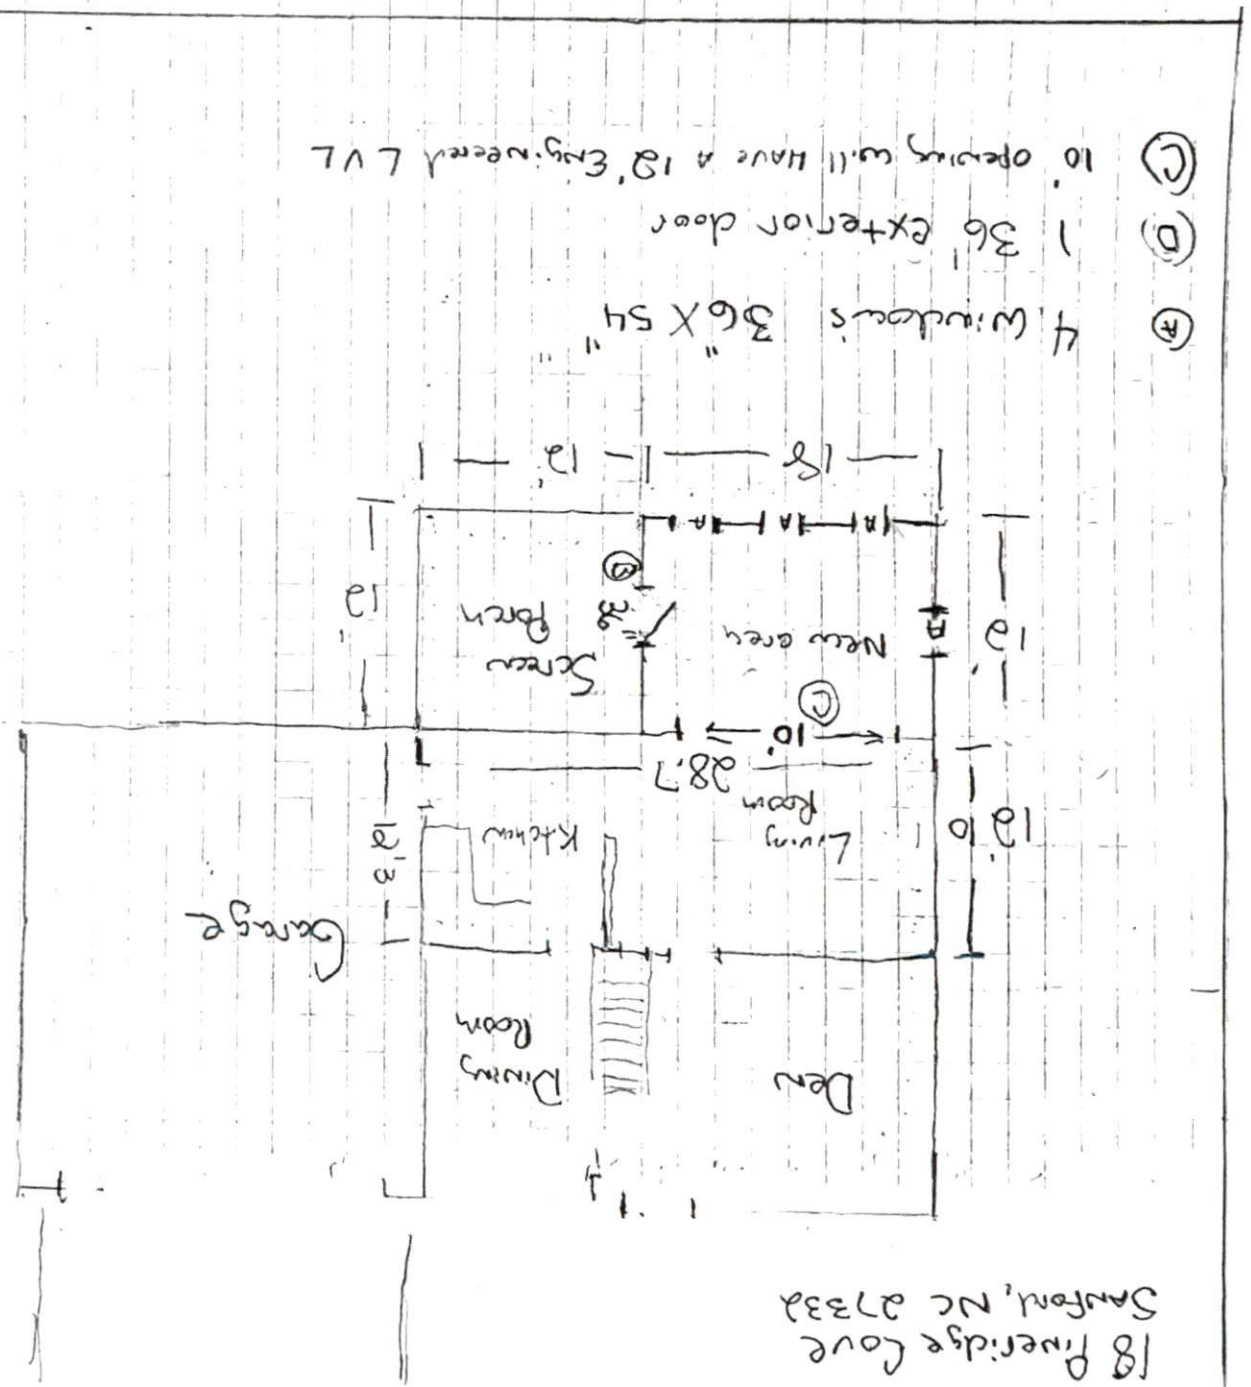 18 Pineridge Cove
SANford, NC 27332
Den
Dining
Room
Garage
12'10
Living
Room
Kitchen
12'3
28.7
10'
C
12'
A
New area
Screen
Porch
12'
36"
B
A A A
18
12'
A 4 windows 36" X 54"
B 1 36" exterior door
C 10' opening will HAVE A 12' ENgineered LVL